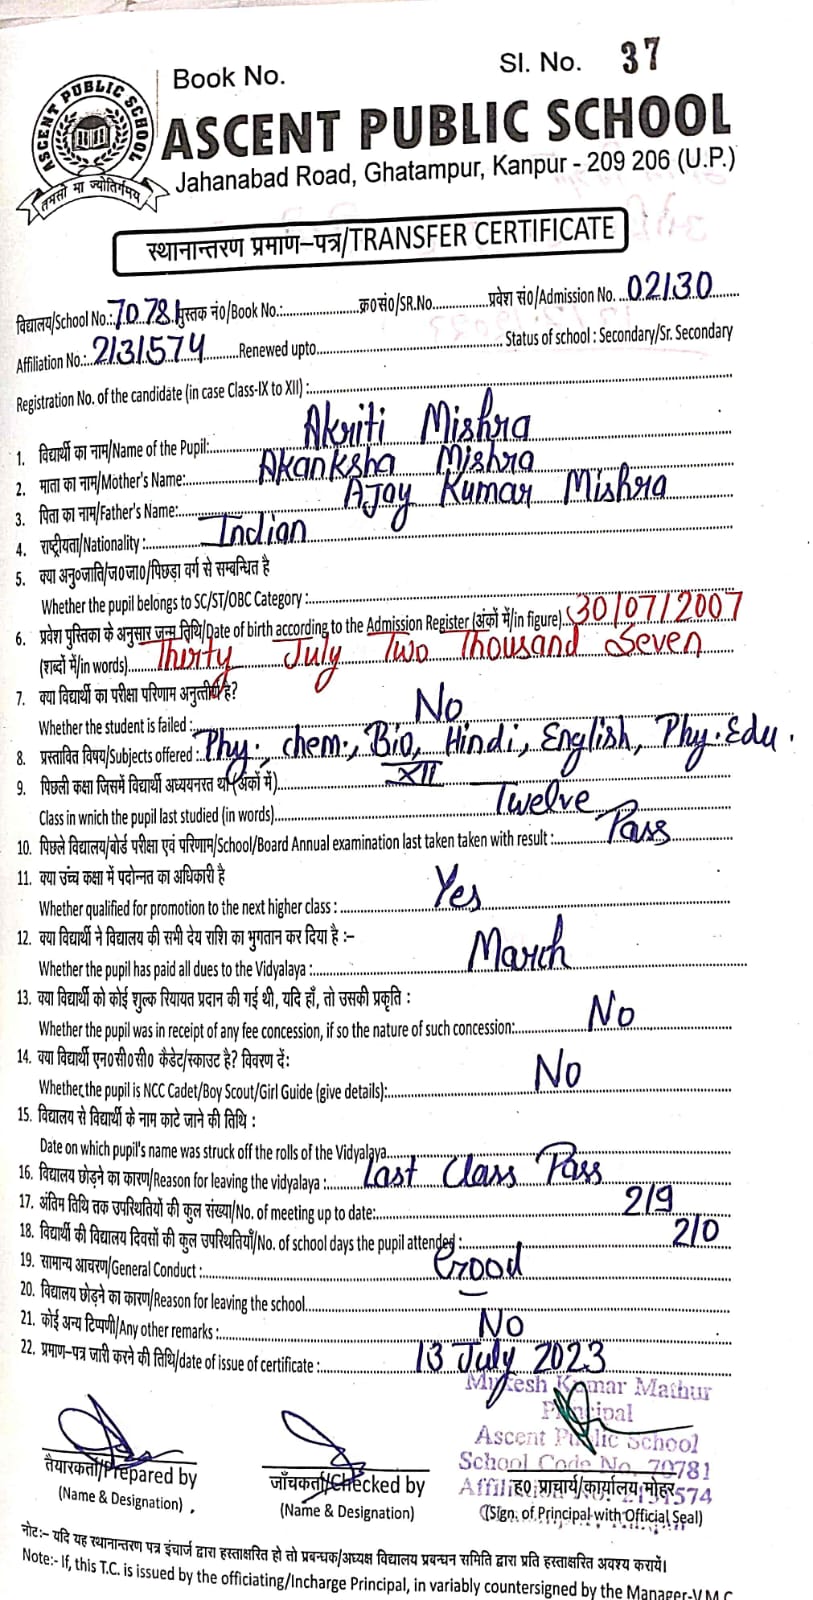 Book No.
Sl. No. 37
ASCENT PUBLIC SCHOOL
तमसो मा ज्योतिर्गमय
ASCENT PUBLIC SCHOOL
Jahanabad Road, Ghatampur, Kanpur - 209 206 (U.P.)
स्थानान्तरण प्रमाण-पत्र/TRANSFER CERTIFICATE
विद्यालय/School No.: 70781 पुस्तक नं०/Book No.: क्र०सं०/SR.No. प्रवेश सं०/Admission No. 02130
Affiliation No.: 2131574 Renewed upto Status of school : Secondary/Sr. Secondary
Registration No. of the candidate (in case Class-IX to XII) :
1. विद्यार्थी का नाम/Name of the Pupil: Akriti Mishra
2. माता का नाम/Mother's Name: Akanksha Mishra
3. पिता का नाम/Father's Name: Ajay Kumar Mishra
4. राष्ट्रीयता/Nationality : Indian
5. क्या अनु०जाति/ज०जा०/पिछड़ा वर्ग से सम्बन्धित है
Whether the pupil belongs to SC/ST/OBC Category :
6. प्रवेश पुस्तिका के अनुसार जन्म तिथि/Date of birth according to the Admission Register (अंकों में/in figure) 30/07/2007
(शब्दों में/in words) Thirty July Two Thousand Seven
7. क्या विद्यार्थी का परीक्षा परिणाम अनुत्तीर्ण है?
Whether the student is failed : No
8. प्रस्तावित विषय/Subjects offered : Phy., chem., Bio, Hindi, English, Phy. Edu.
9. पिछली कक्षा जिसमें विद्यार्थी अध्ययनरत था (अंकों में) XII
Class in wnich the pupil last studied (in words) Twelve
10. पिछले विद्यालय/बोर्ड परीक्षा एवं परिणाम/School/Board Annual examination last taken taken with result : Pass
11. क्या उच्च कक्षा में पदोन्नत का अधिकारी है
Whether qualified for promotion to the next higher class : Yes
12. क्या विद्यार्थी ने विद्यालय की सभी देय राशि का भुगतान कर दिया है :-
Whether the pupil has paid all dues to the Vidyalaya : March
13. क्या विद्यार्थी को कोई शुल्क रियायत प्रदान की गई थी, यदि हाँ, तो उसकी प्रकृति :
Whether the pupil was in receipt of any fee concession, if so the nature of such concession: No
14. क्या विद्यार्थी एन०सी०सी० कैडेट/स्काउट है? विवरण दें:
Whether,the pupil is NCC Cadet/Boy Scout/Girl Guide (give details): No
15. विद्यालय से विद्यार्थी के नाम काटे जाने की तिथि :
Date on which pupil's name was struck off the rolls of the Vidyalaya
16. विद्यालय छोड़ने का कारण/Reason for leaving the vidyalaya : Last Class Pass
17. अंतिम तिथि तक उपस्थितियों की कुल संख्या/No. of meeting up to date: 219
18. विद्यार्थी की विद्यालय दिवसों की कुल उपस्थितियाँ/No. of school days the pupil attended : 210
19. सामान्य आचरण/General Conduct : Good
20. विद्यालय छोड़ने का कारण/Reason for leaving the school —
21. कोई अन्य टिप्पणी/Any other remarks : No
22. प्रमाण-पत्र जारी करने की तिथि/date of issue of certificate : 13 July 2023
Mukesh Kumar Mathur
Principal
Ascent Public School
School Code No. 70781
Affiliation No. 2131574
तैयारकर्ता/Prepared by
(Name & Designation)
जाँचकर्ता/Checked by
(Name & Designation)
ह० प्राचार्य/कार्यालय मोहर
(Sign. of Principal with Official Seal)
नोट:- यदि यह स्थानान्तरण पत्र इंचार्ज द्वारा हस्ताक्षरित हो तो प्रबन्धक/अध्यक्ष विद्यालय प्रबन्धन समिति द्वारा प्रति हस्ताक्षरित अवश्य करायें।
Note:- If, this T.C. is issued by the officiating/Incharge Principal, in variably countersigned by the Manager-V.M.C.